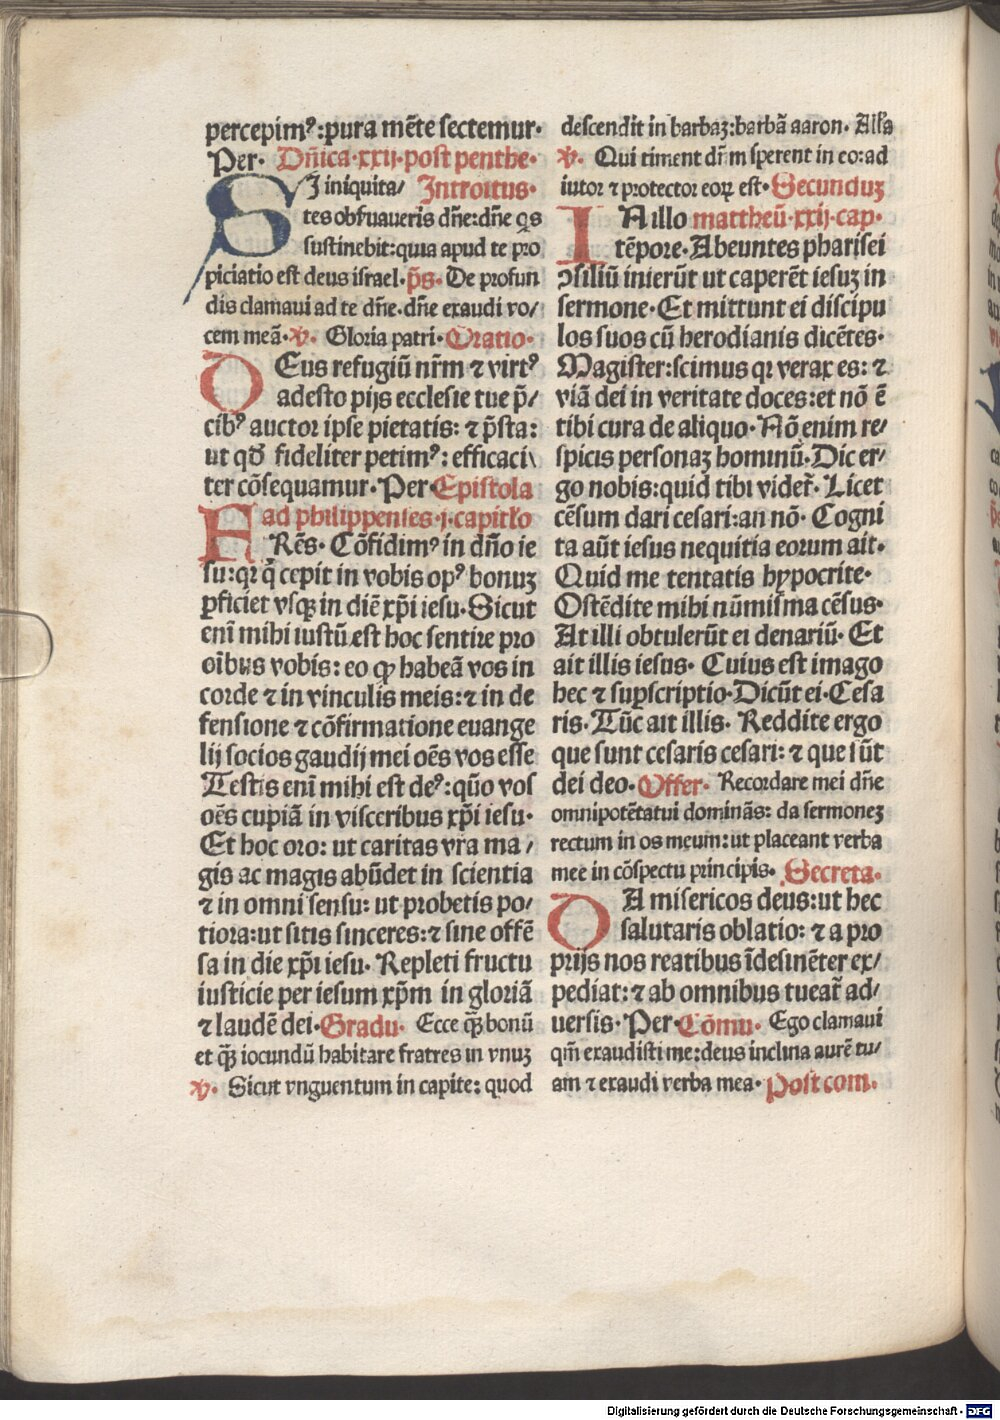 percepimꝰ:pura mẽte sectemur·
Per· Dñica·xxij·post penthe·
SI iniquita/ Introitus·
tes obſuaueris dñe:dñe q̃s
sustinebit:quia apud te pro
piciatio est deus israel·p̃s· De profun
dis clamaui ad te dñe·dñe exaudi vo/
cem meã·℣· Gloria patri·Oratio·
DEus refugiũ nr̃m ⁊ virtꝰ
adesto pijs ecclesie tue p̃/
cibꝰ auctor ipse pietatis: ⁊ p̃sta:
ut qd̃ fideliter petimꝰ: efficaci\
ter cõsequamur·Per·Epistola
ad philippenses·j·capitł̃o
FRẽs· Cõfidimꝰ in dño ie
su:qꝛ q̃ cepit in vobis opꝰ bonuꝫ
ꝑficiet vsqꝫ in diẽ xp̃i iesu·Sicut
enĩ mihi iustũ est hoc sentire pro
oĩbus vobis: eo ꝙ habeã vos in
corde ⁊ in vinculis meis:⁊ in de
fensione ⁊ cõfirmatione euange
lij socios gaudij mei oẽs vos esse
Testis enĩ mihi est deꝰ:quõ vos
oẽs cupiã in visceribus xp̃i iesu·
Et hoc oro: ut caritas vr̃a ma/
gis ac magis abũdet in scientia
⁊ in omni sensu: ut probetis po/
tiora:ut sitis sinceres:⁊ sine offẽ
sa in die xp̃i iesu· Repleti fructu
iusticie per iesum xp̃m in gloriã
⁊ laudẽ dei·Gradu· Ecce qꝫ̃ bonũ
et qꝫ̃ iocundũ habitare fratres in vnuꝫ
℣· Sicut vnguentum in capite: quod
descendit in barbaꝫ:barbã aaron· Alł̃a
℣· Qui timent dñm sperent in eo:ad
iutor ⁊ protector eoꝝ est·Secunduꝫ
IN illo mattheũ·xxij·cap·
tẽpore·Abeuntes pharisei
ↄsiliũ inierũt ut caperẽt iesuꝫ in
sermone·Et mittunt ei discipu
los suos cũ herodianis dicẽtes·
Magister:scimus qꝛ verax es: ⁊
viã dei in veritate doces:et nõ ẽ
tibi cura de aliquo·Nõ enim re/
spicis personaꝫ hominũ·Dic er/
go nobis:quid tibi videt̃· Licet
cẽsum dari cesari:an nõ· Cogni
ta aũt iesus nequitia eorum ait·
Quid me tentatis hypocrite·
Ostẽdite mihi nũmisma cẽsus·
At illi obtulerũt ei denariũ· Et
ait illis iesus· Cuius est imago
hec ⁊ suꝑscriptio·Dicũt ei·Cesa
ris·Tũc ait illis· Reddite ergo
que sunt cesaris cesari: ⁊ que sũt
dei deo·Offer· Recordare mei dñe
omnipotẽtatui dominãs: da sermoneꝫ
rectum in os meum:ut placeant verba
mee in cõspectu principis· Secreta·
DA misericos deus:ut hec
salutaris oblatio: ⁊ a pro
prijs nos reatibus ĩdesinẽter ex/
pediat:⁊ ab omnibus tueat̃ ad/
uersis·Per·Cõmu· Ego clamaui
qm̃ exaudisti me:deus inclina aurẽ tu/
am ⁊ exaudi verba mea·Post com·
Digitalisierung gefördert durch die Deutsche Forschungsgemeinschaft - DFG